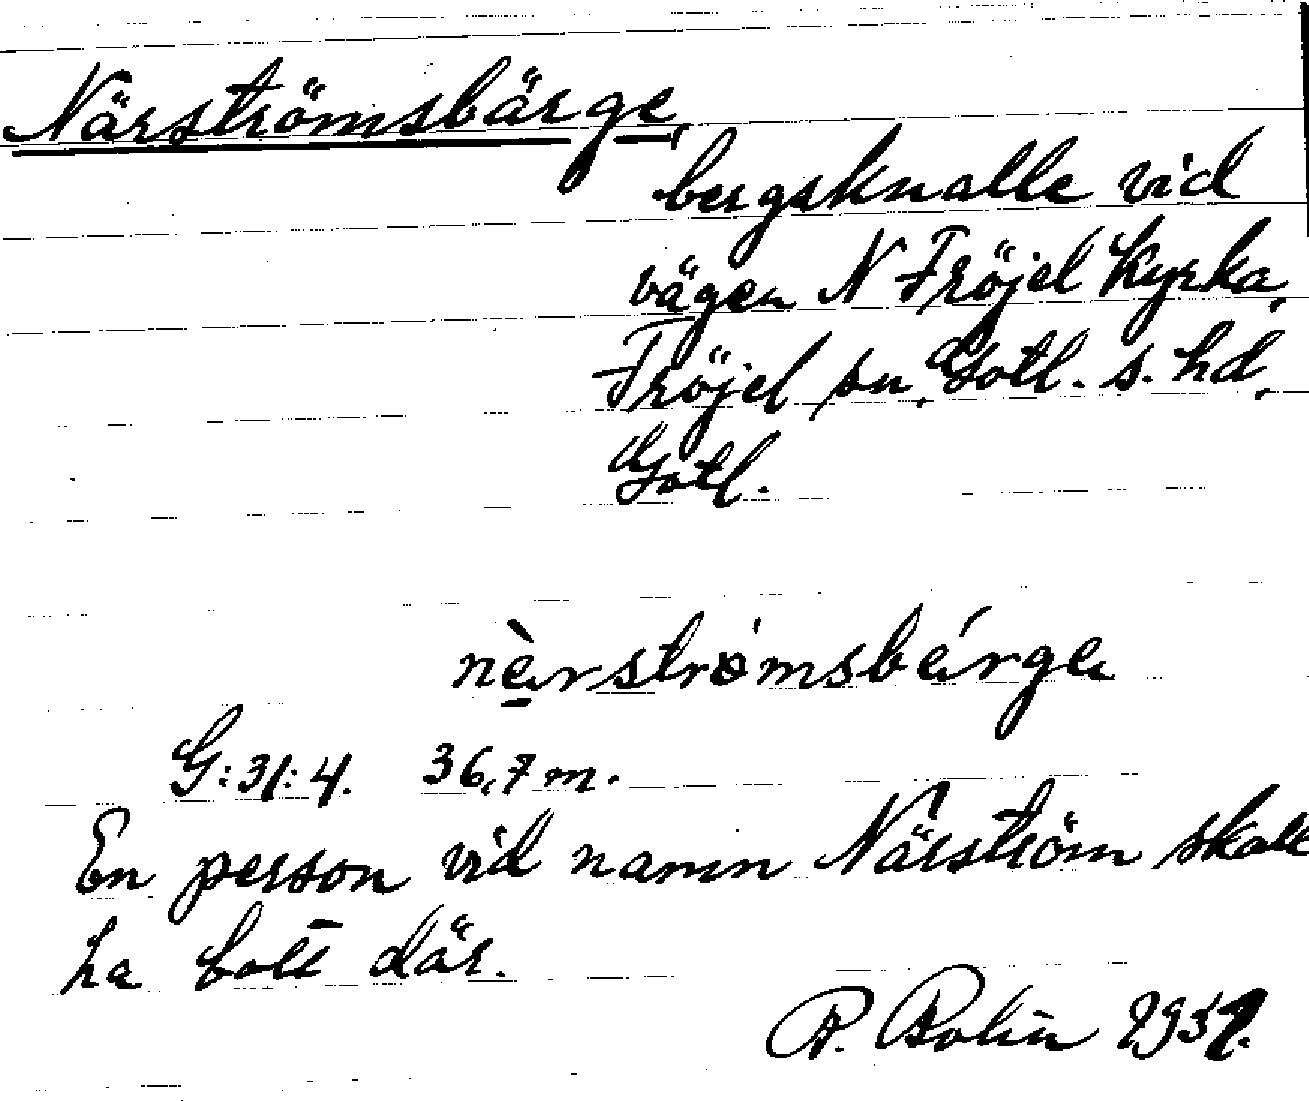 Närströmsbärge,
bergsknalle vid
vägen N Fröjel kyrka,
Fröjel sn, Gotl. s. hd,
Gotl.
nèrströ́msbérge
G:31:4. 36,7 m.
En person vid namn Närström skall
ha bott där.
P. Bolin